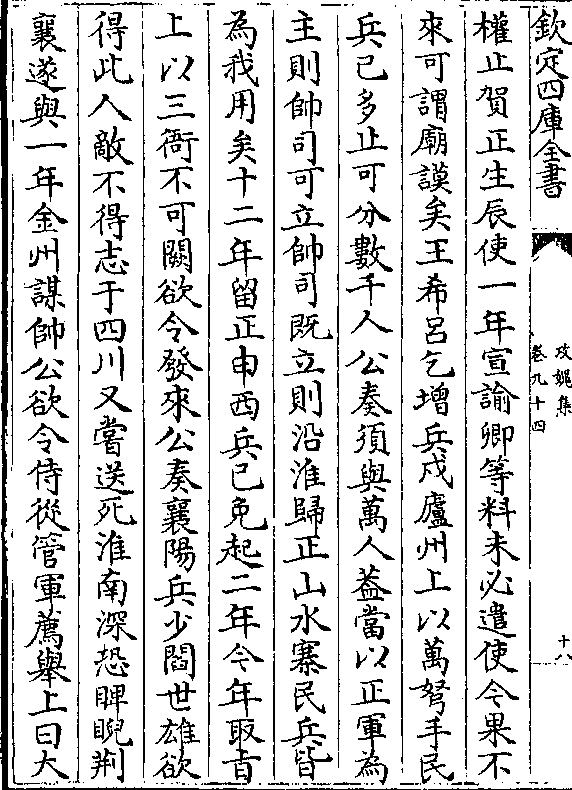 欽定四庫全書
攻媿集
卷九十四
十八
權止賀正生辰使一年宣諭卿等料未必遣使今果不
來可謂廟謨矣王希呂乞增兵戍廬州上以萬弩手民
兵已多止可分數千人公奏須與萬人葢當以正軍為
主則帥司可立帥司既立則沿淮歸正山水寨民兵皆
為我用矣十二年留正申西兵已免起二年今年取旨
上以三衙不可闕欲令發來公奏襄陽兵少閻世雄欲
得此人敵不得志于四川又嘗送死淮南深恐睥睨荆
襄遂與一年金州謀帥公欲令侍從管軍薦舉上曰大